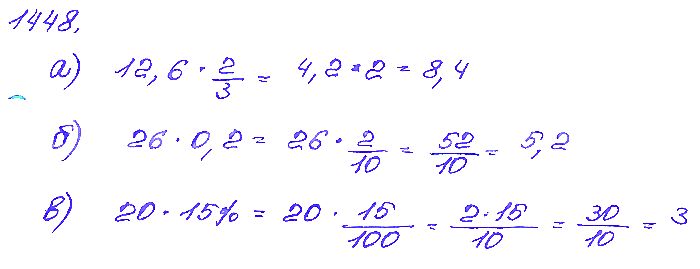 1448.
а) 12,6 · 2/3 = 4,2 · 2 = 8,4
б) 26 · 0,2 = 26 · 2/10 = 52/10 = 5,2
в) 20 · 15% = 20 · 15/100 = 2·15/10 = 30/10 = 3